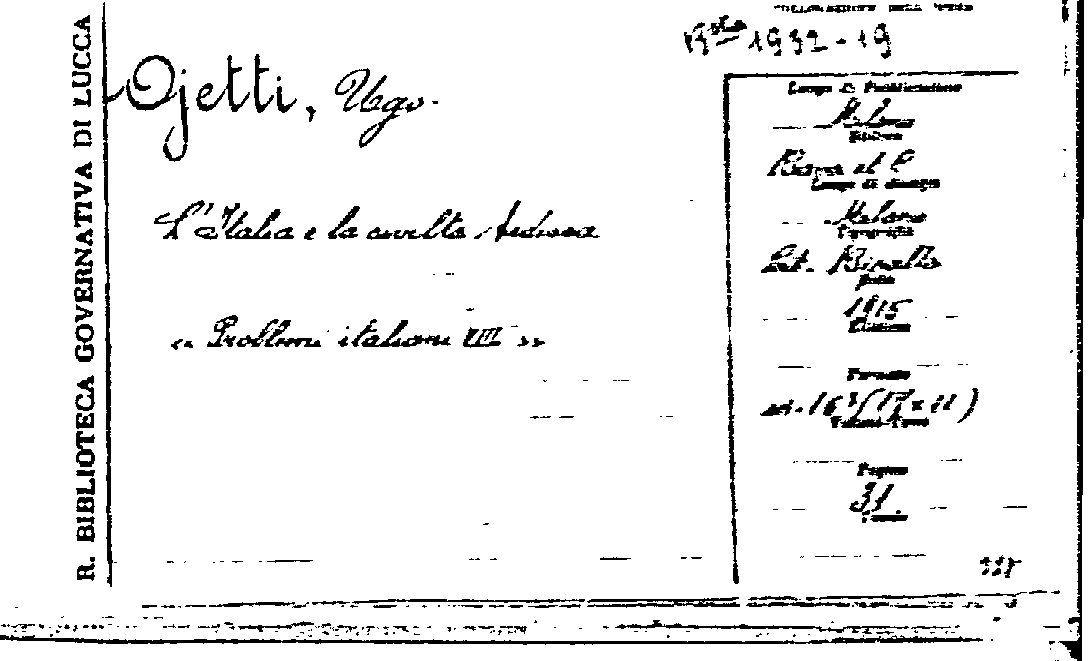 R. BIBLIOTECA GOVERNATIVA DI LUCCA
COLLOCAZIONE DELL'OPERA
Bta 1932-19
Ojetti, Ugo.
L'Italia e la civiltà tedesca
« Problemi italiani VIII »
Luogo di Pubblicazione
Milano
Editore
Luogo di stampa
Milano
Tipografia
Data
1915
Edizione
Formato
in-16° (17 x 11)
Volume-Tomo
Pagine
31.